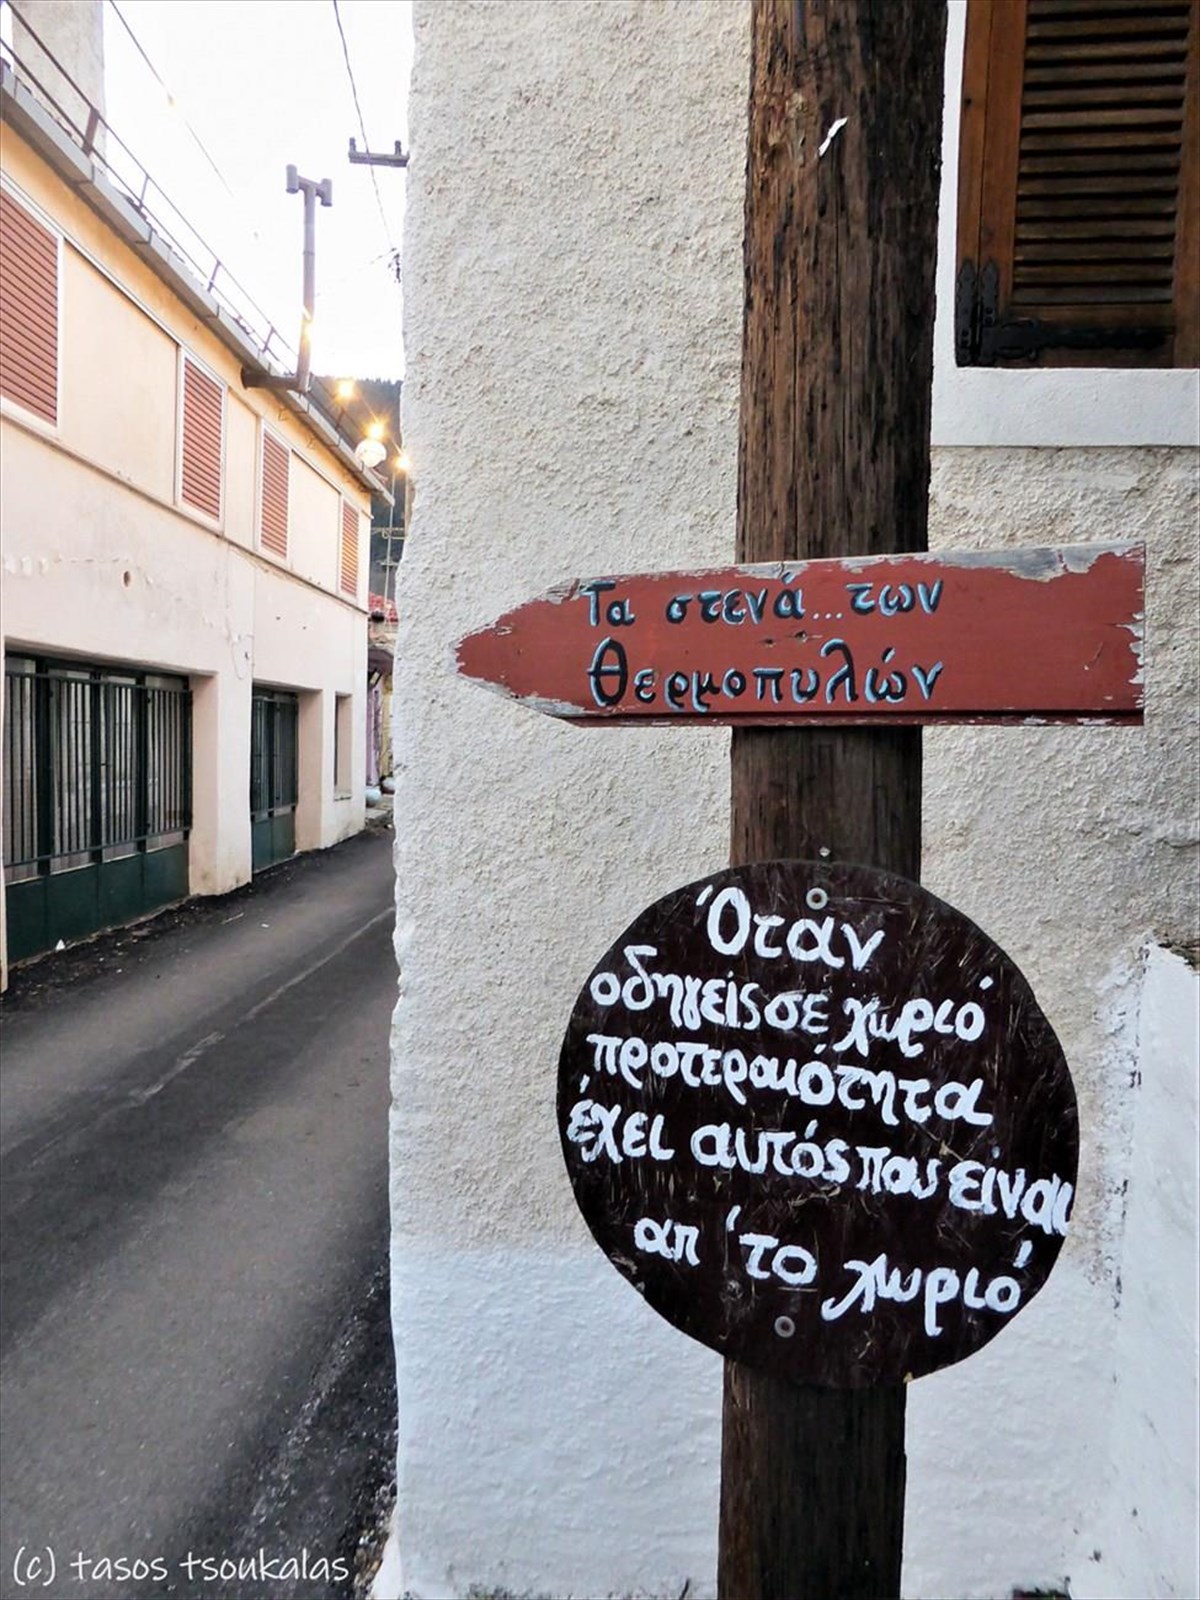 Τα στενά... των
Θερμοπυλών
Όταν
οδηγείς σε χωριό
προτεραιότητα
έχει αυτός που είναι
απ 'το χωριό
(c) tasos tsoukalas